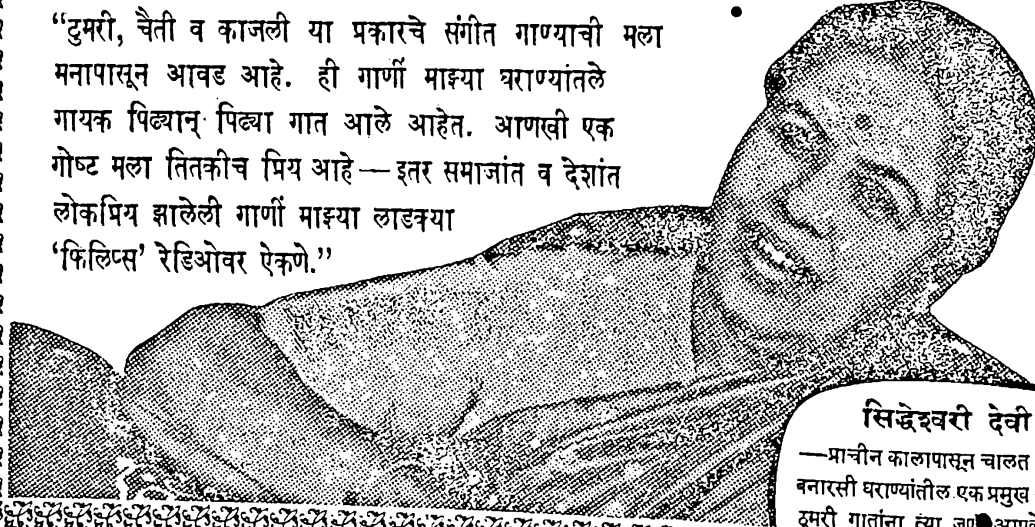 “ठुमरी, चैती व काजली या प्रकारचे संगीत गाण्याची मला
मनापासून आवड आहे. ही गाणीं माझ्या घराण्यांतले
गायक पिढ्यान् पिढ्या गात आले आहेत. आणखी एक
गोष्ट मला तितकीच प्रिय आहे — इतर समाजांत व देशांत
लोकप्रिय झालेली गाणीं माझ्या लाडक्या
‘फिलिप्स’ रेडिओवर ऐकणे.”
सिद्धेश्वरी देवी
—प्राचीन कालापासून चालत
बनारसी घराण्यांतील एक प्रमुख
ठुमरी गातांना त्या